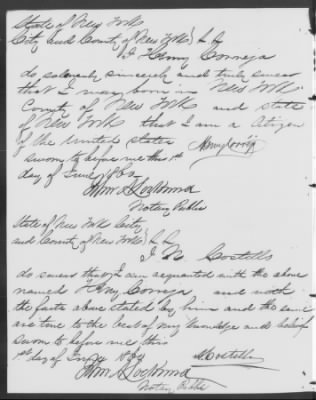 State of New York
City and County of New York } S S
I Henry Correja
do solemnly sincerely and truly swear
that I was born in New York
County of New York and state
of New York that I am a citizen
of the United States Henry Correja
Sworn to before me this 1st
day of June
Notary Public
State of New York City
and County of New York } S S
I N Costello
do swear that I am acquainted with the above
named Henry Correja and with
the facts above stated by him and the same
are true to the best of my knowledge and belief
Sworn to before me this
1st day of N Costello
Notary Public